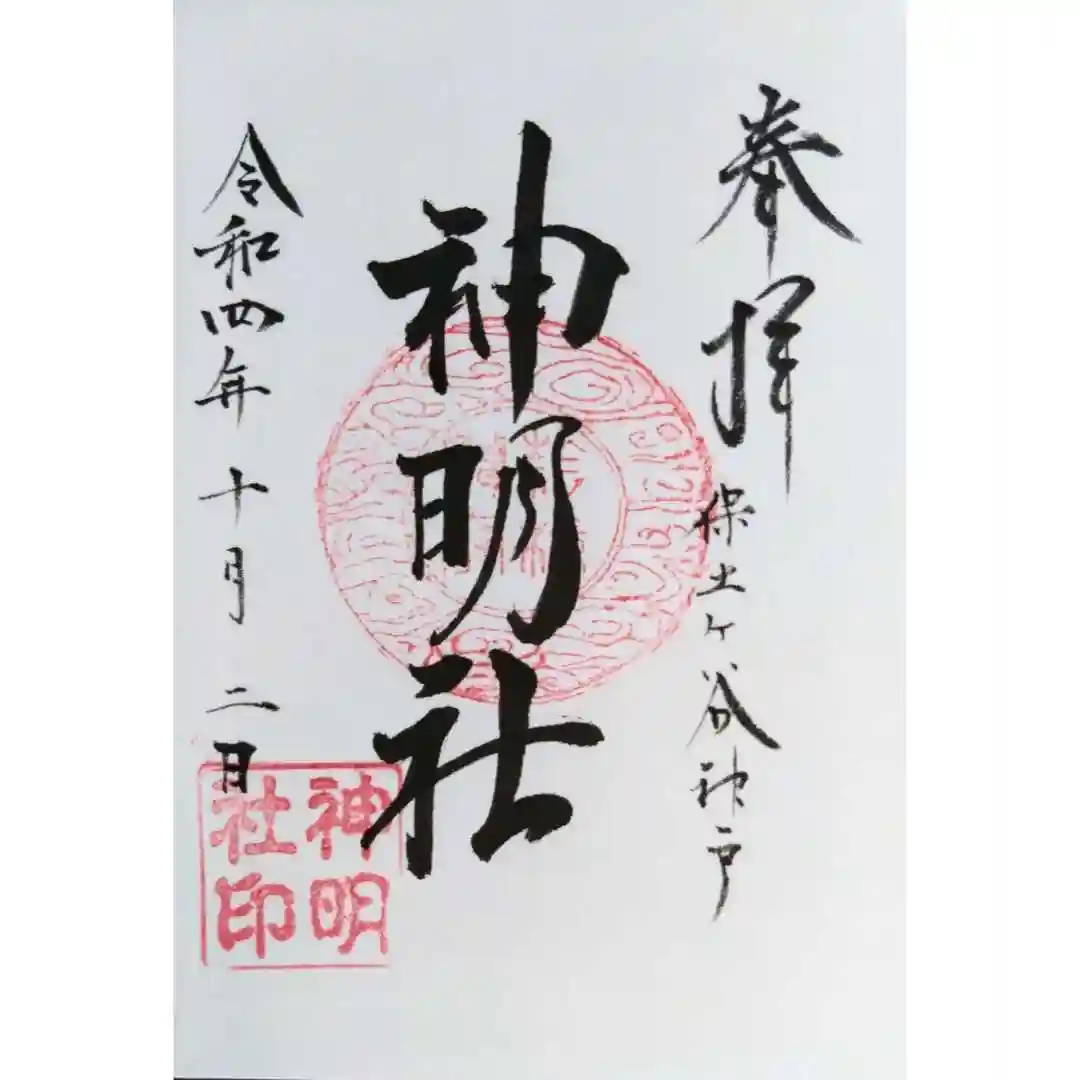 奉拝
保土ヶ谷神戸
神明社
令和四年十月二日
神明
社印